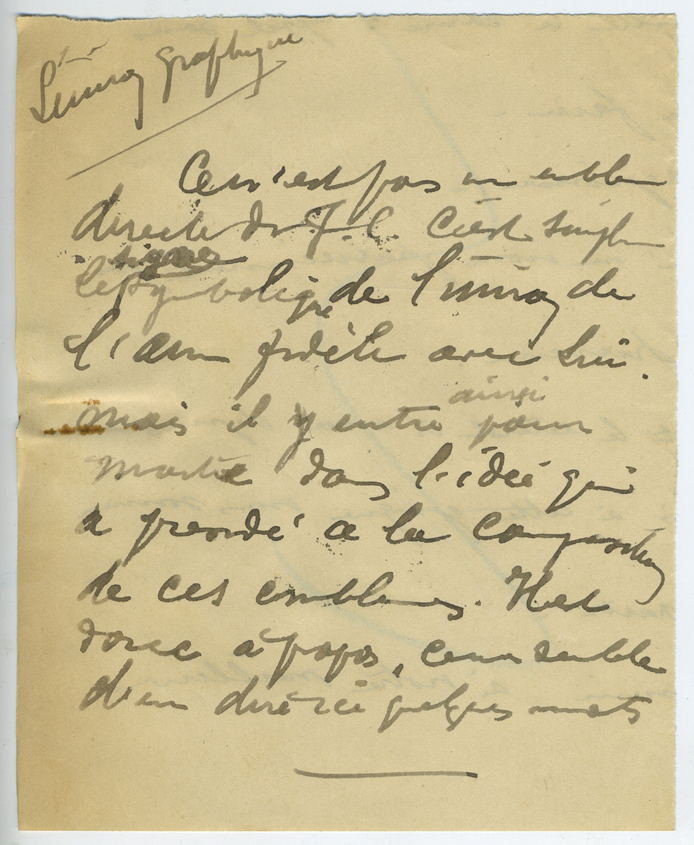 graphique
Ce n'est pas un emblème
directe de J. C. C'est simple
signe
le symbolique de l'union de
l'âme fidèle avec Lui.
mais il y entre ainsi pour
moitié dans l'idée qui
a présidé a la composition
de ces emblemes. Il est
donc à propos, ce me semble
d'en dire ici quelques mots